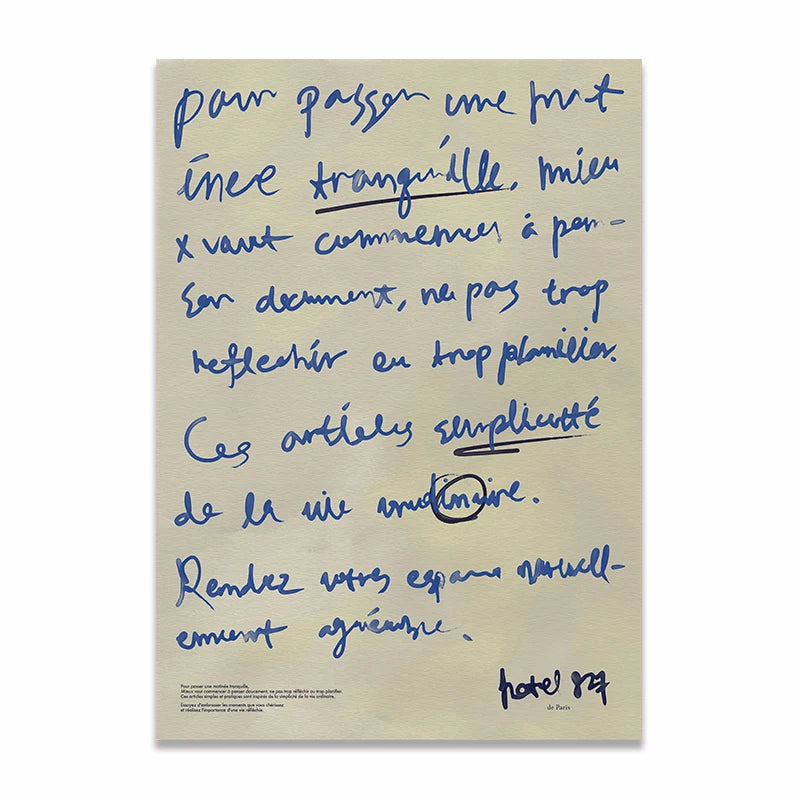 pour passer une mat
inée tranquille, mieu
x vaut commencer à pen-
ser doucement, ne pas trop
réfléchir ou trop planifier.
Ces articles simplicité
de la vie ordinaire.
Rendez votres espace naturell-
ement agréable.
Pour passer une matinée tranquille,
Mieux vaut commencer à penser doucement, ne pas trop réfléchir ou trop planifier.
Ces articles simples et pratiques sont inspirés de la simplicité de la vie ordinaire.
Essayez d'embrasser les moments que vous chérissez
et réalisez l'importance d'une vie réfléchie.
hotel 827
de Paris